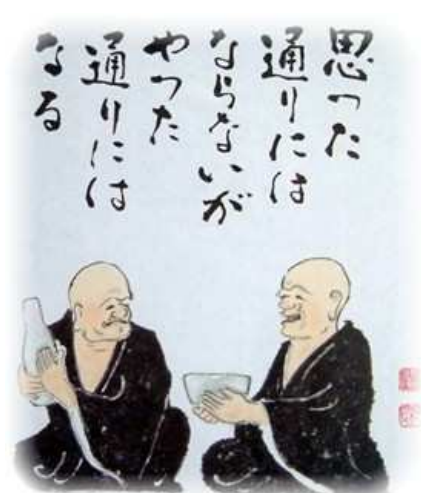 思った
通りには
ならないが
やった
通りには
なる